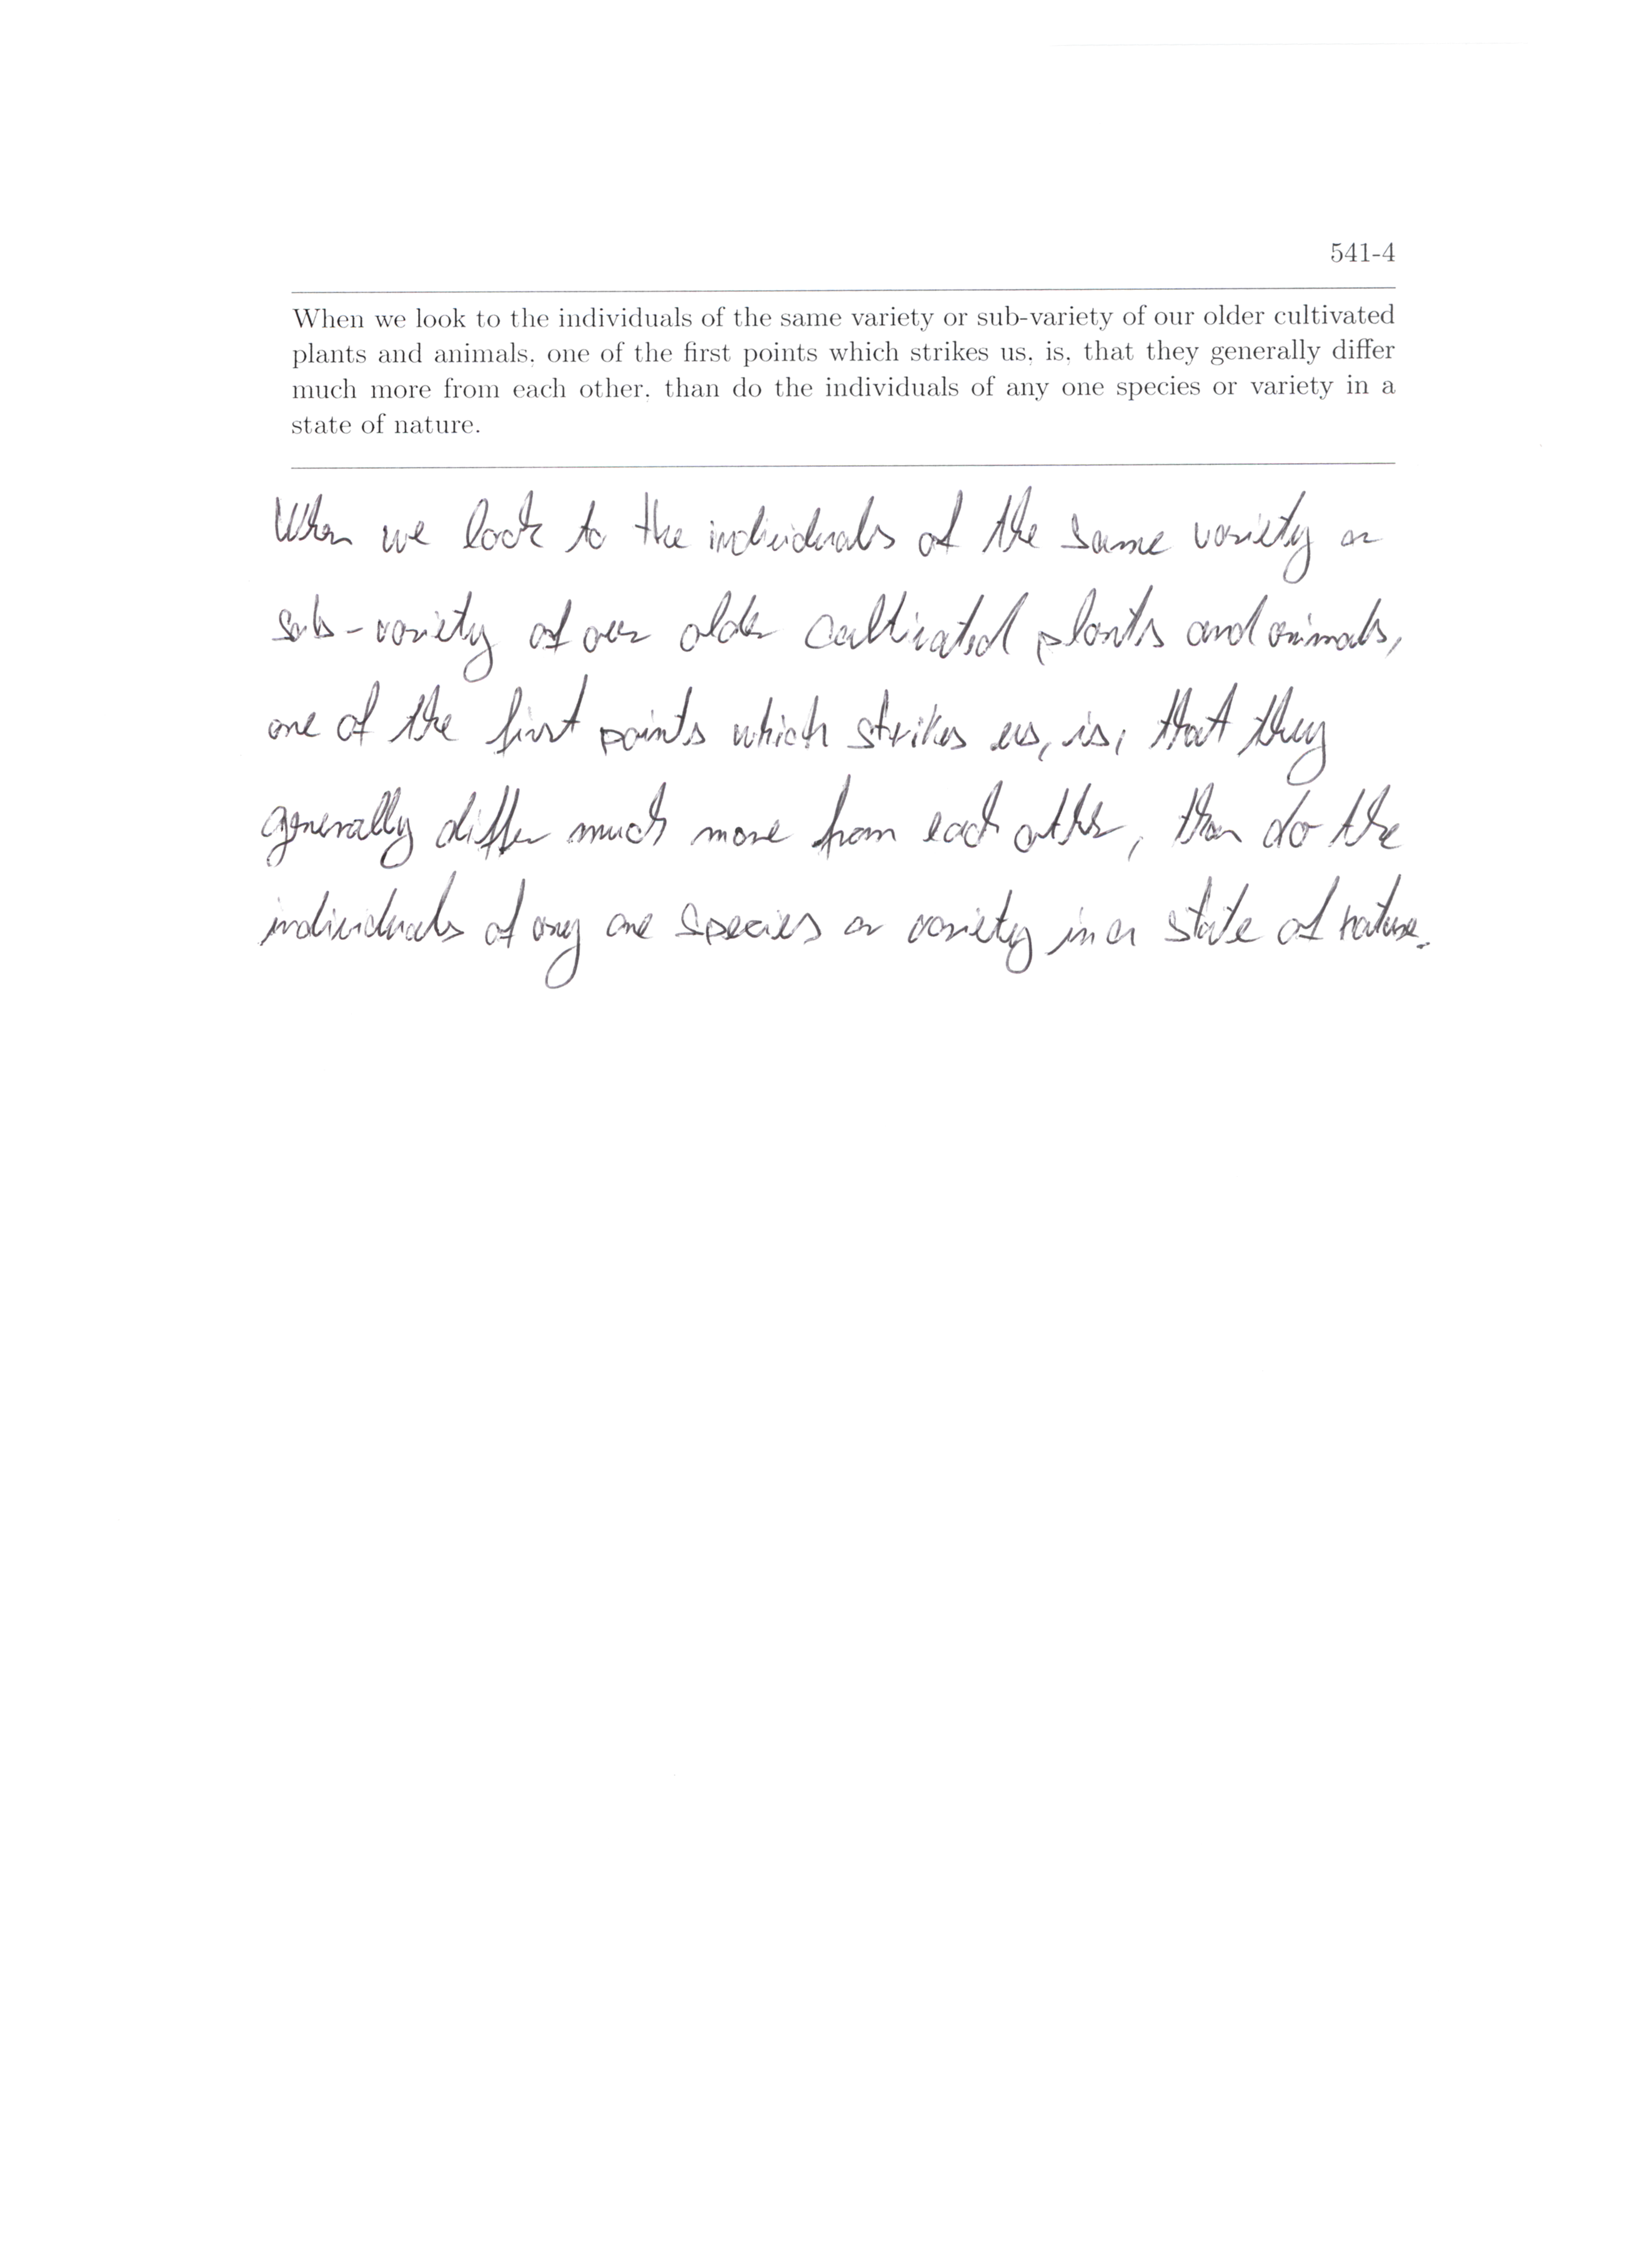 541-4
When we look to the individuals of the same variety or sub-variety of our older cultivated
plants and animals, one of the first points which strikes us, is, that they generally differ
much more from each other, than do the individuals of any one species or variety in a
state of nature.
When we look to the individuals of the same variety or
sub-variety of our older cultivated plants and animals,
one of the first points which strikes us, is, that they
generally differ much more from each other, than do the
individuals of any one species or variety in a state of nature.